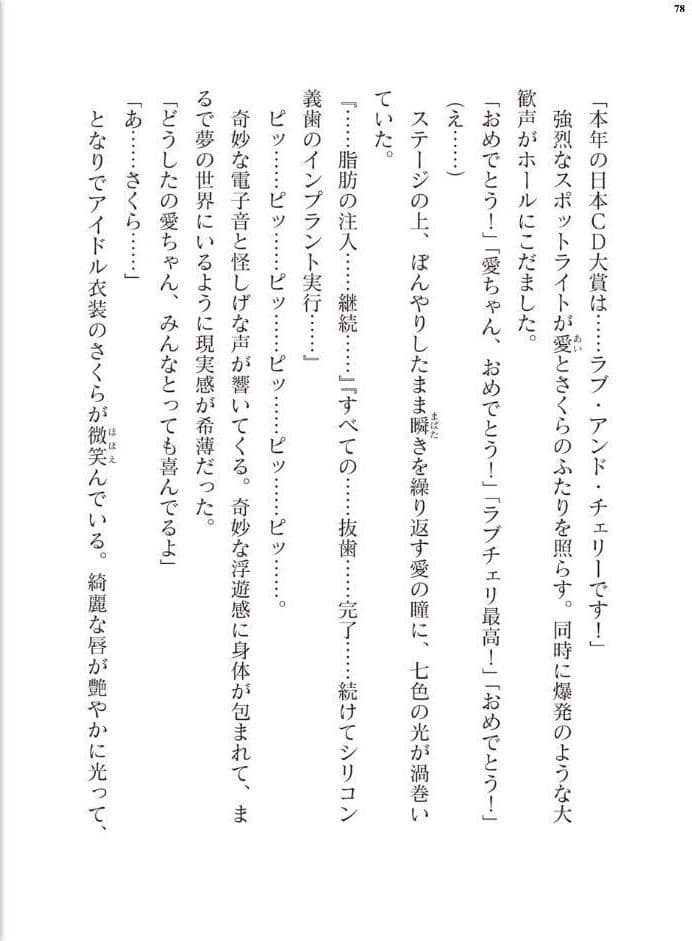 78
「本年の日本ＣＤ大賞は……ラブ・アンド・チェリーです！」
　強烈なスポットライトが愛とさくらのふたりを照らす。同時に爆発のような大
あい
歓声がホールにこだました。
「おめでとう！」「愛ちゃん、おめでとう！」「ラブチェリ最高！」「おめでとう！」
（え……）
　ステージの上、ぼんやりしたまま瞬きを繰り返す愛の瞳に、七色の光が渦巻い
まばた
ていた。
『……脂肪の注入……継続……』『すべての……抜歯……完了……続けてシリコン
義歯のインプラント実行……』
　ピッ……ピッ……ピッ……ピッ……ピッ……ピッ……。
　奇妙な電子音と怪しげな声が響いてくる。奇妙な浮遊感に身体が包まれて、ま
るで夢の世界にいるように現実感が希薄だった。
「どうしたの愛ちゃん、みんなとっても喜んでるよ」
「あ……さくら……」
　となりでアイドル衣装のさくらが微笑んでいる。綺麗な唇が艶やかに光って、
ほほえ